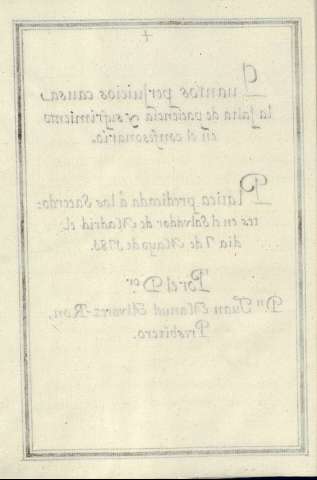 Quantos perjuicios causa
la falta de paciencia y sufrimiento
en el confesonario.
Platica predicada á los Sacerdo:
tes en el Salvador de Madrid el
dia 7 de Mayo de 1785.
Por el Dor.
Dn. Juan Manuel Alvarez-Ron,
Presbitero.